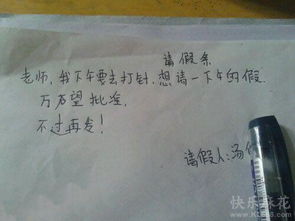 请假条
老师，我下午要去打针，想请一下午的假，
万万望批准，
不过再发！
请假人：汤
快乐麻花